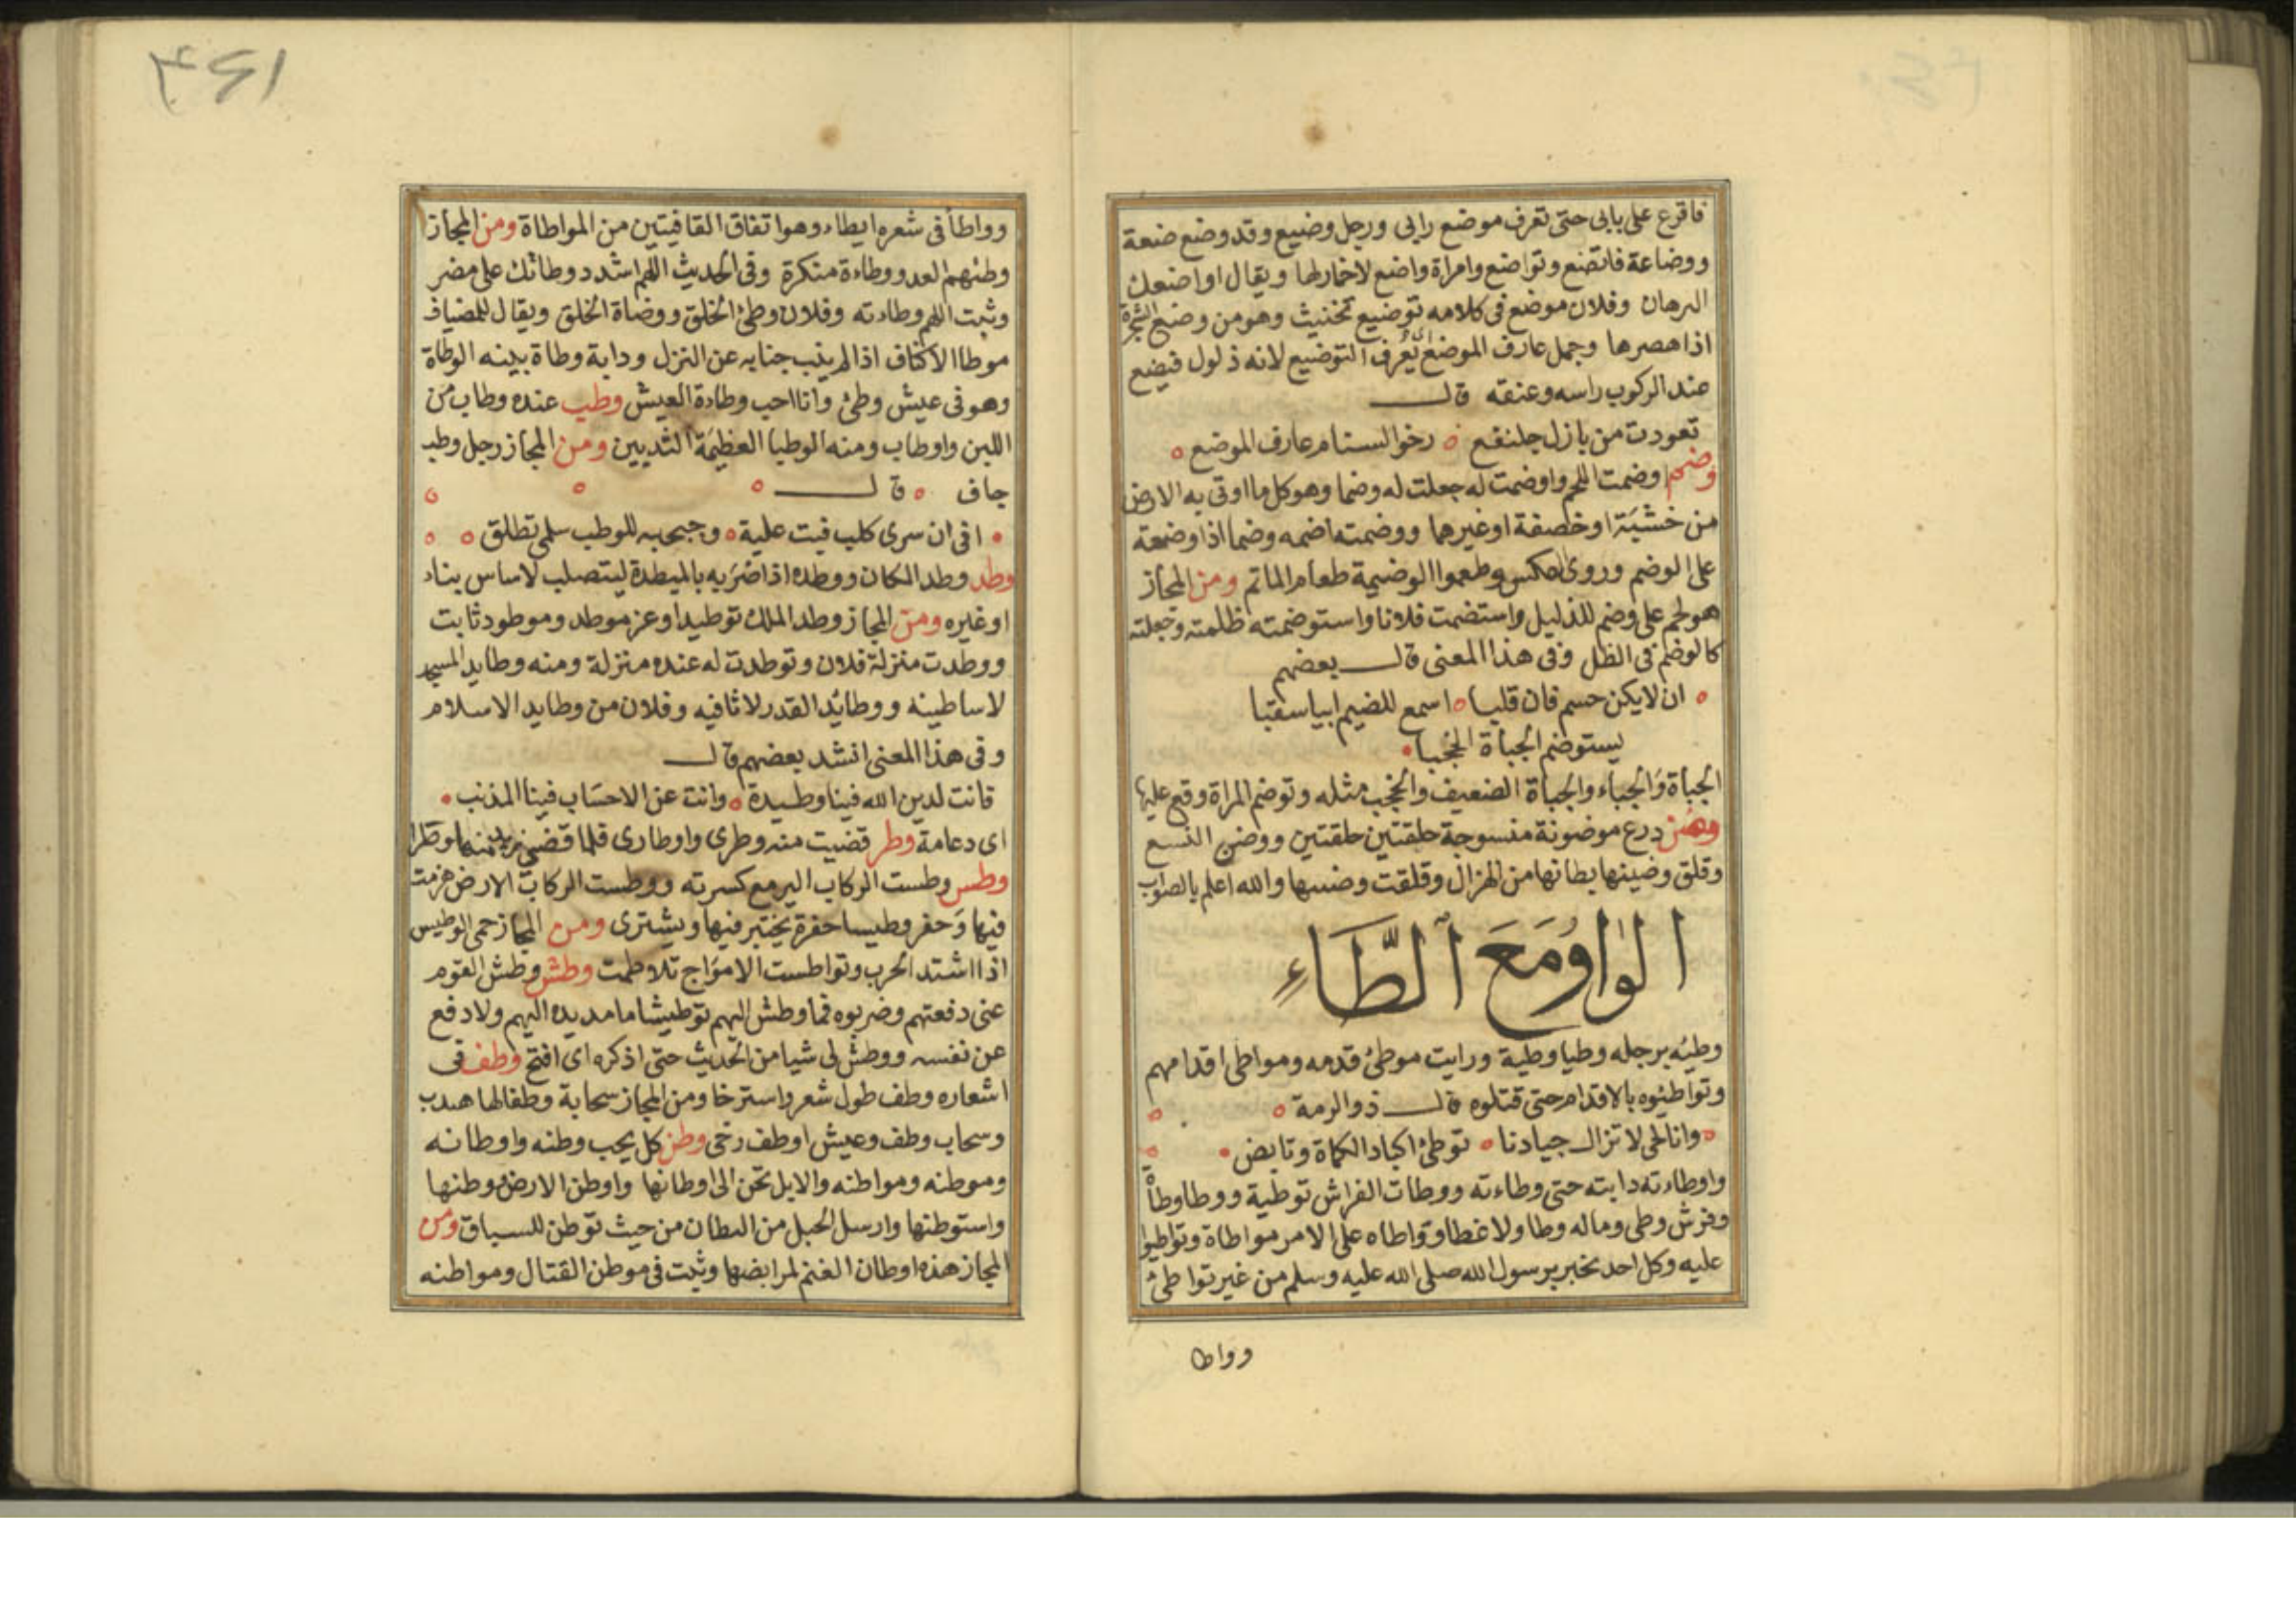 فاقرع على بابى حتى تعرف موضع رابى ورجل وضيع وقد وضع ضعة
ووضاعة فاتضع وتواضع وامراة واضع لاخمارلها ويقال اواضعك
الرهان وفلان موضع فى كلامه توضيع تخنيث وهو من وضع الشجرة
اذا هصرها وجمل عارف الموضع اى يعرف التوضيع لانه ذلول فيضع
عند الركوب راسه وعنقه قال
تعودت من بازل جلنقع رخو السنام عارف الموضع
وضم وضمت اللحم واوضمت له جعلت له وضما وهو كل ما اوقى به الارض
من خشبة او خصفة او غيرها ووضمته اضمه وضما اذا وضعة
على الوضم وروى العكس وطعموا الوضيمة طعام الماتم ومن المجاز
هو لحم على وضم للذليل واستضمت فلانا واستوضمته ظلمته وجعلته
كالوضم فى الظل وفى هذا المعنى قال بعضهم
ان لا يكن جسم فان قلبا اسمع للضيم ابيا سقبا
يستوضم الجبأة الخجبا
الجبأة والجباء والجباة الضعيف والخجب مثله وتوضم المراة وقع عليها
وضن درع موضونة منسوجة حلقتين حلقتين ووضن النسع
وقلق وضينها بطانها من الهزال وقلقت وضنها والله اعلم بالصواب
الواو مع الطاء
وطئه برجله وطيا وطية ورايت موطئ قدمه ومواطى اقدامهم
وتواطئوه بالاقدام حتى قتلوه قال ذو الرمة
وانا لحى لا تزال جيادنا توطئ اكباد الكماة وتابض
واوطاءته دابته حتى وطاءته ووطات الفراش توطية ووطا وطأة
وفرش وطى وماله وطا ولا غطا وواطاه على الامر مواطاة وتواطيوا
عليه وكل احد يخبر برسول الله صلى الله عليه وسلم من غير تواطئ
وواطا
٣٤١
وواطأ فى شعره ايطاء وهو اتفاق القافيتين من المواطاة ومن المجاز
وطئهم العدو وطاءة منكرة وفى الحديث اللهم اشدد وطاتك على مضر
وثبت اللهم وطاءته وفلان وطئ الخلق ووضاة الخلق ويقال للمضياف
موطا الاكناف اذا لم ينب جنابه عن النزل ودابة وطاة بينه الوطاة
وهو فى عيش وطئ وانا احب وطاءة العيش وطب عنده وطاب من
اللبن واوطاب ومنه الوطبا العظيمة الثديين ومن المجاز رجل وطب
جاف قال
افى ان سرى كلب فبيت علبة وجبحبه للوطب سلمى تطلق
وطد وطد المكان ووطده اذا ضربه بالميطدة ليتصلب لاساس بناء
او غيره ومن المجاز وطد الملك توطيدا وعز موطد وموطود ثابت
ووطدت منزلة فلان وتوطدت له عنده منزلة ومنه وطايد المسجد
لاساطينه ووطائد القدر لاثافيه وفلان من وطايد الاسلام
وفى هذا المعنى انشد بعضهم قال
فانت لدين الله فينا وطيدة وانت عن الاحساب فينا المذنب
اى دعامة وطر قضيت منه وطرى واوطارى فلما قضى زيد منها وطرا
وطس وطست الركاب اليرمع كسرته ووطست الركاب الارض هزمت
فيها وحفر وطيسا حفرة يختبز فيها ويشترى ومن المجاز حمى الوطيس
اذا اشتد الحرب وتواطست الامواج تلاطمت وطش وطش القوم
عنى دفعتهم وضربوه فما وطش اليهم توطيشا ما مد يده اليهم ولا دفع
عن نفسه ووطش لى شيا من الحديث حتى اذكره اى افتح وطف فى
اشعاره وطف طول شعر واسترخا ومن المجاز سحابة وطفا لها هدب
وسحاب وطف وعيش اوطف رخى وطن كل يحب وطنه واوطانه
وموطنه ومواطنه والابل تحن الى اوطانها واوطن الارض ووطنها
واستوطنها وارسل الحبل من البطان من حيث توطن للسباق ومن
المجاز هذه اوطان الغنم لمرابضها وثبت فى موطن القتال ومواطنه